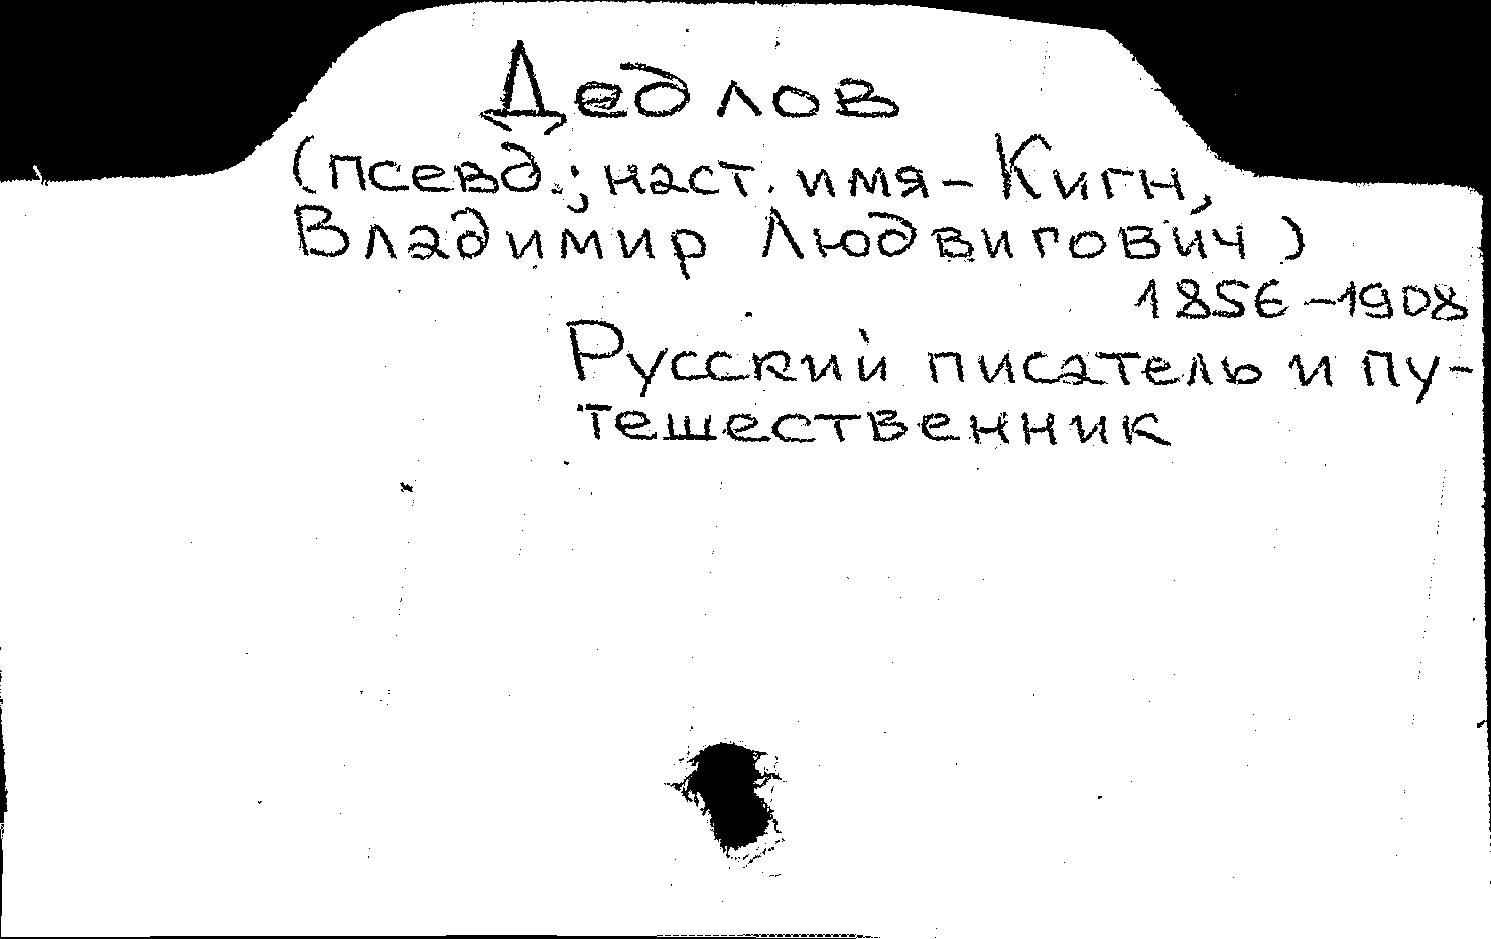 Дедлов
(псевд.; наст. имя - Кигн,
Владимир Людвигович)
1856-1908
Русский писатель и пу-
тешественник